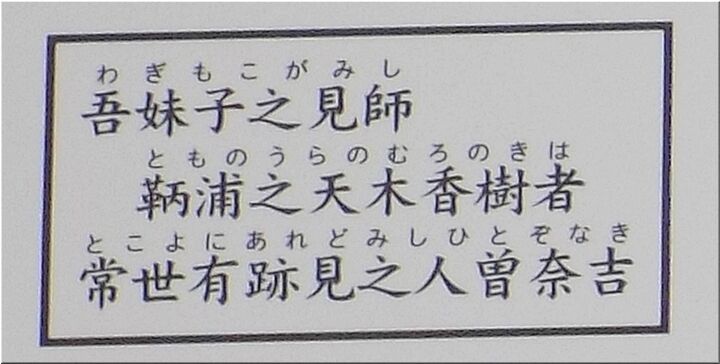 わぎもこがみし
吾妹子之見師
とものうらのむろのきは
鞆浦之天木香樹者
とこよにあれどみしひとぞなき
常世有跡見之人曽奈吉